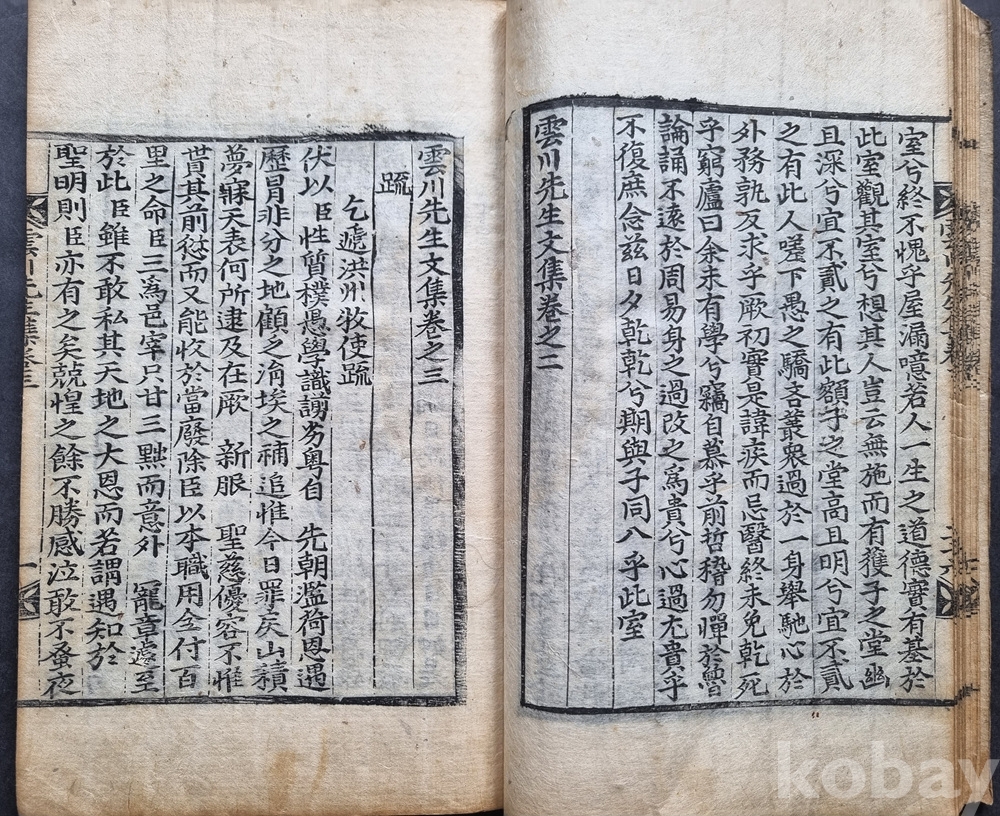 室兮終不愧乎屋漏噫若人一生之道德實有基於
此室觀其室兮想其人豈云無施而有獲子之堂幽
且深兮宜不貳之有此額子之堂高且明兮宜不貳
之有此人嗟下愚之驕吝叢衆過於一身舉馳心於
外務孰及求乎厥初實是諱疾而忌醫終未免乾死
乎窮廬曰余未有學兮竊自慕乎前哲稽勿憚於魯
論誦不遠於周易身之過改之爲貴兮心過尤貴乎
不復庶念玆日夕乾乾兮期與子同入乎此室
雲川先生文集卷之二
雲川先生文集卷之三
疏
乞遞洪州牧使疏
伏以臣性質樸愚學識謭劣粤自 先朝濫荷恩遇
歷冒非分之地顧乏涓埃之補追惟今日罪戾山積
夢寐天表何所逮及在厥 新服 聖慈優容不惟
貰其前愆而又能收於當廢除臣以本職用全付百
里之命臣三爲邑宰只甘三黜而意外 寵章遽至
於此臣雖不敢私其天地之大恩而若謂遇知於
聖明則臣亦有之矣兢惶之餘不勝感泣敢不蚤夜
雲川先生集卷三
一
kobay